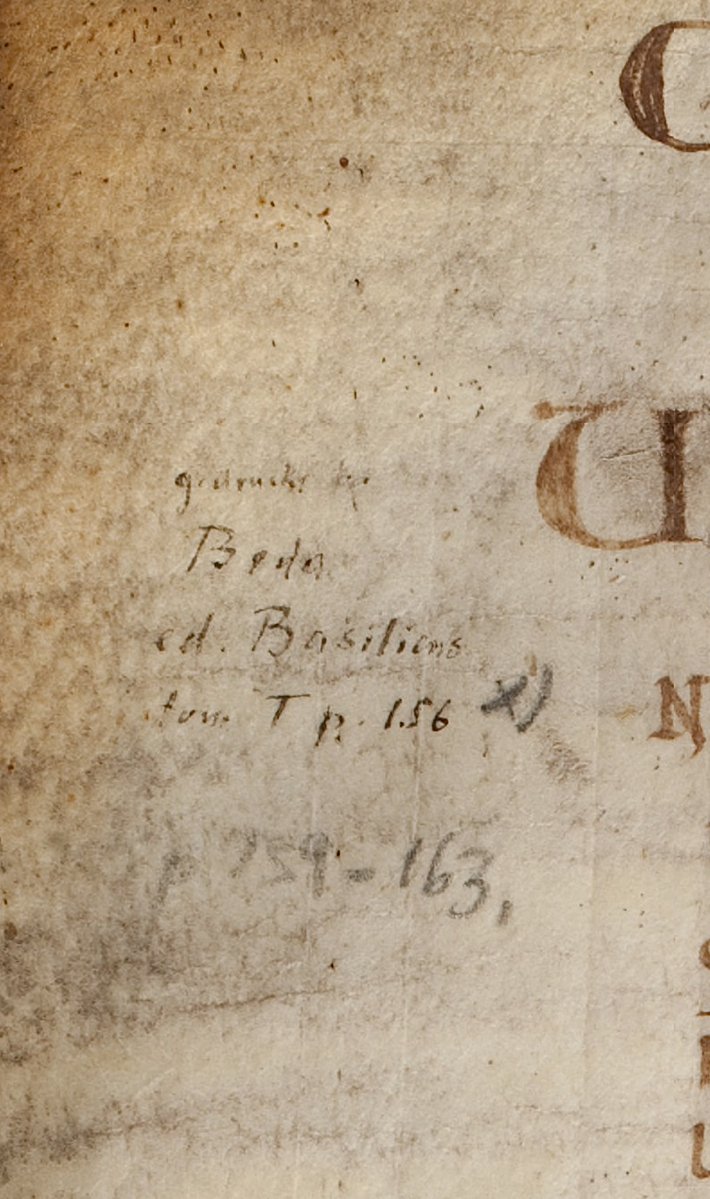 C
U
gedruckt
Beda
ed. Basiliens
N
tom T p. 156 x)
p 159 - 163,